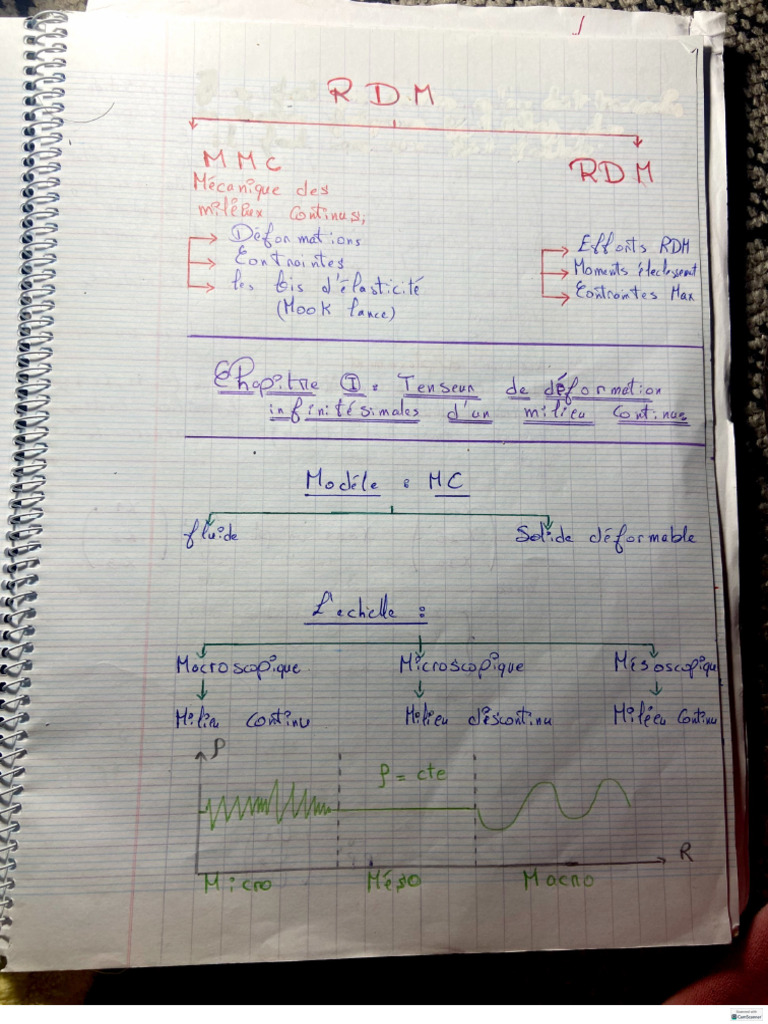 R D M
MMC
RDM
Mécanique des
milieux continus,
Déformations
Contraintes
les lois d'élasticité
(Hook lance)
Efforts RDM
Moments
Contraintes Max
Chapitre I : Tenseur de déformation
infinitésimales d'un milieu Continus
Modèle : MC
fluide
Solide déformable
L'echelle :
Macroscopique
Microscopique
Mésoscopique
Milieu continu
Milieu discontinu
Miliéu Continu
ρ
ρ = cte
R
Micro
Méso
Macro
Scanned with
CamScanner